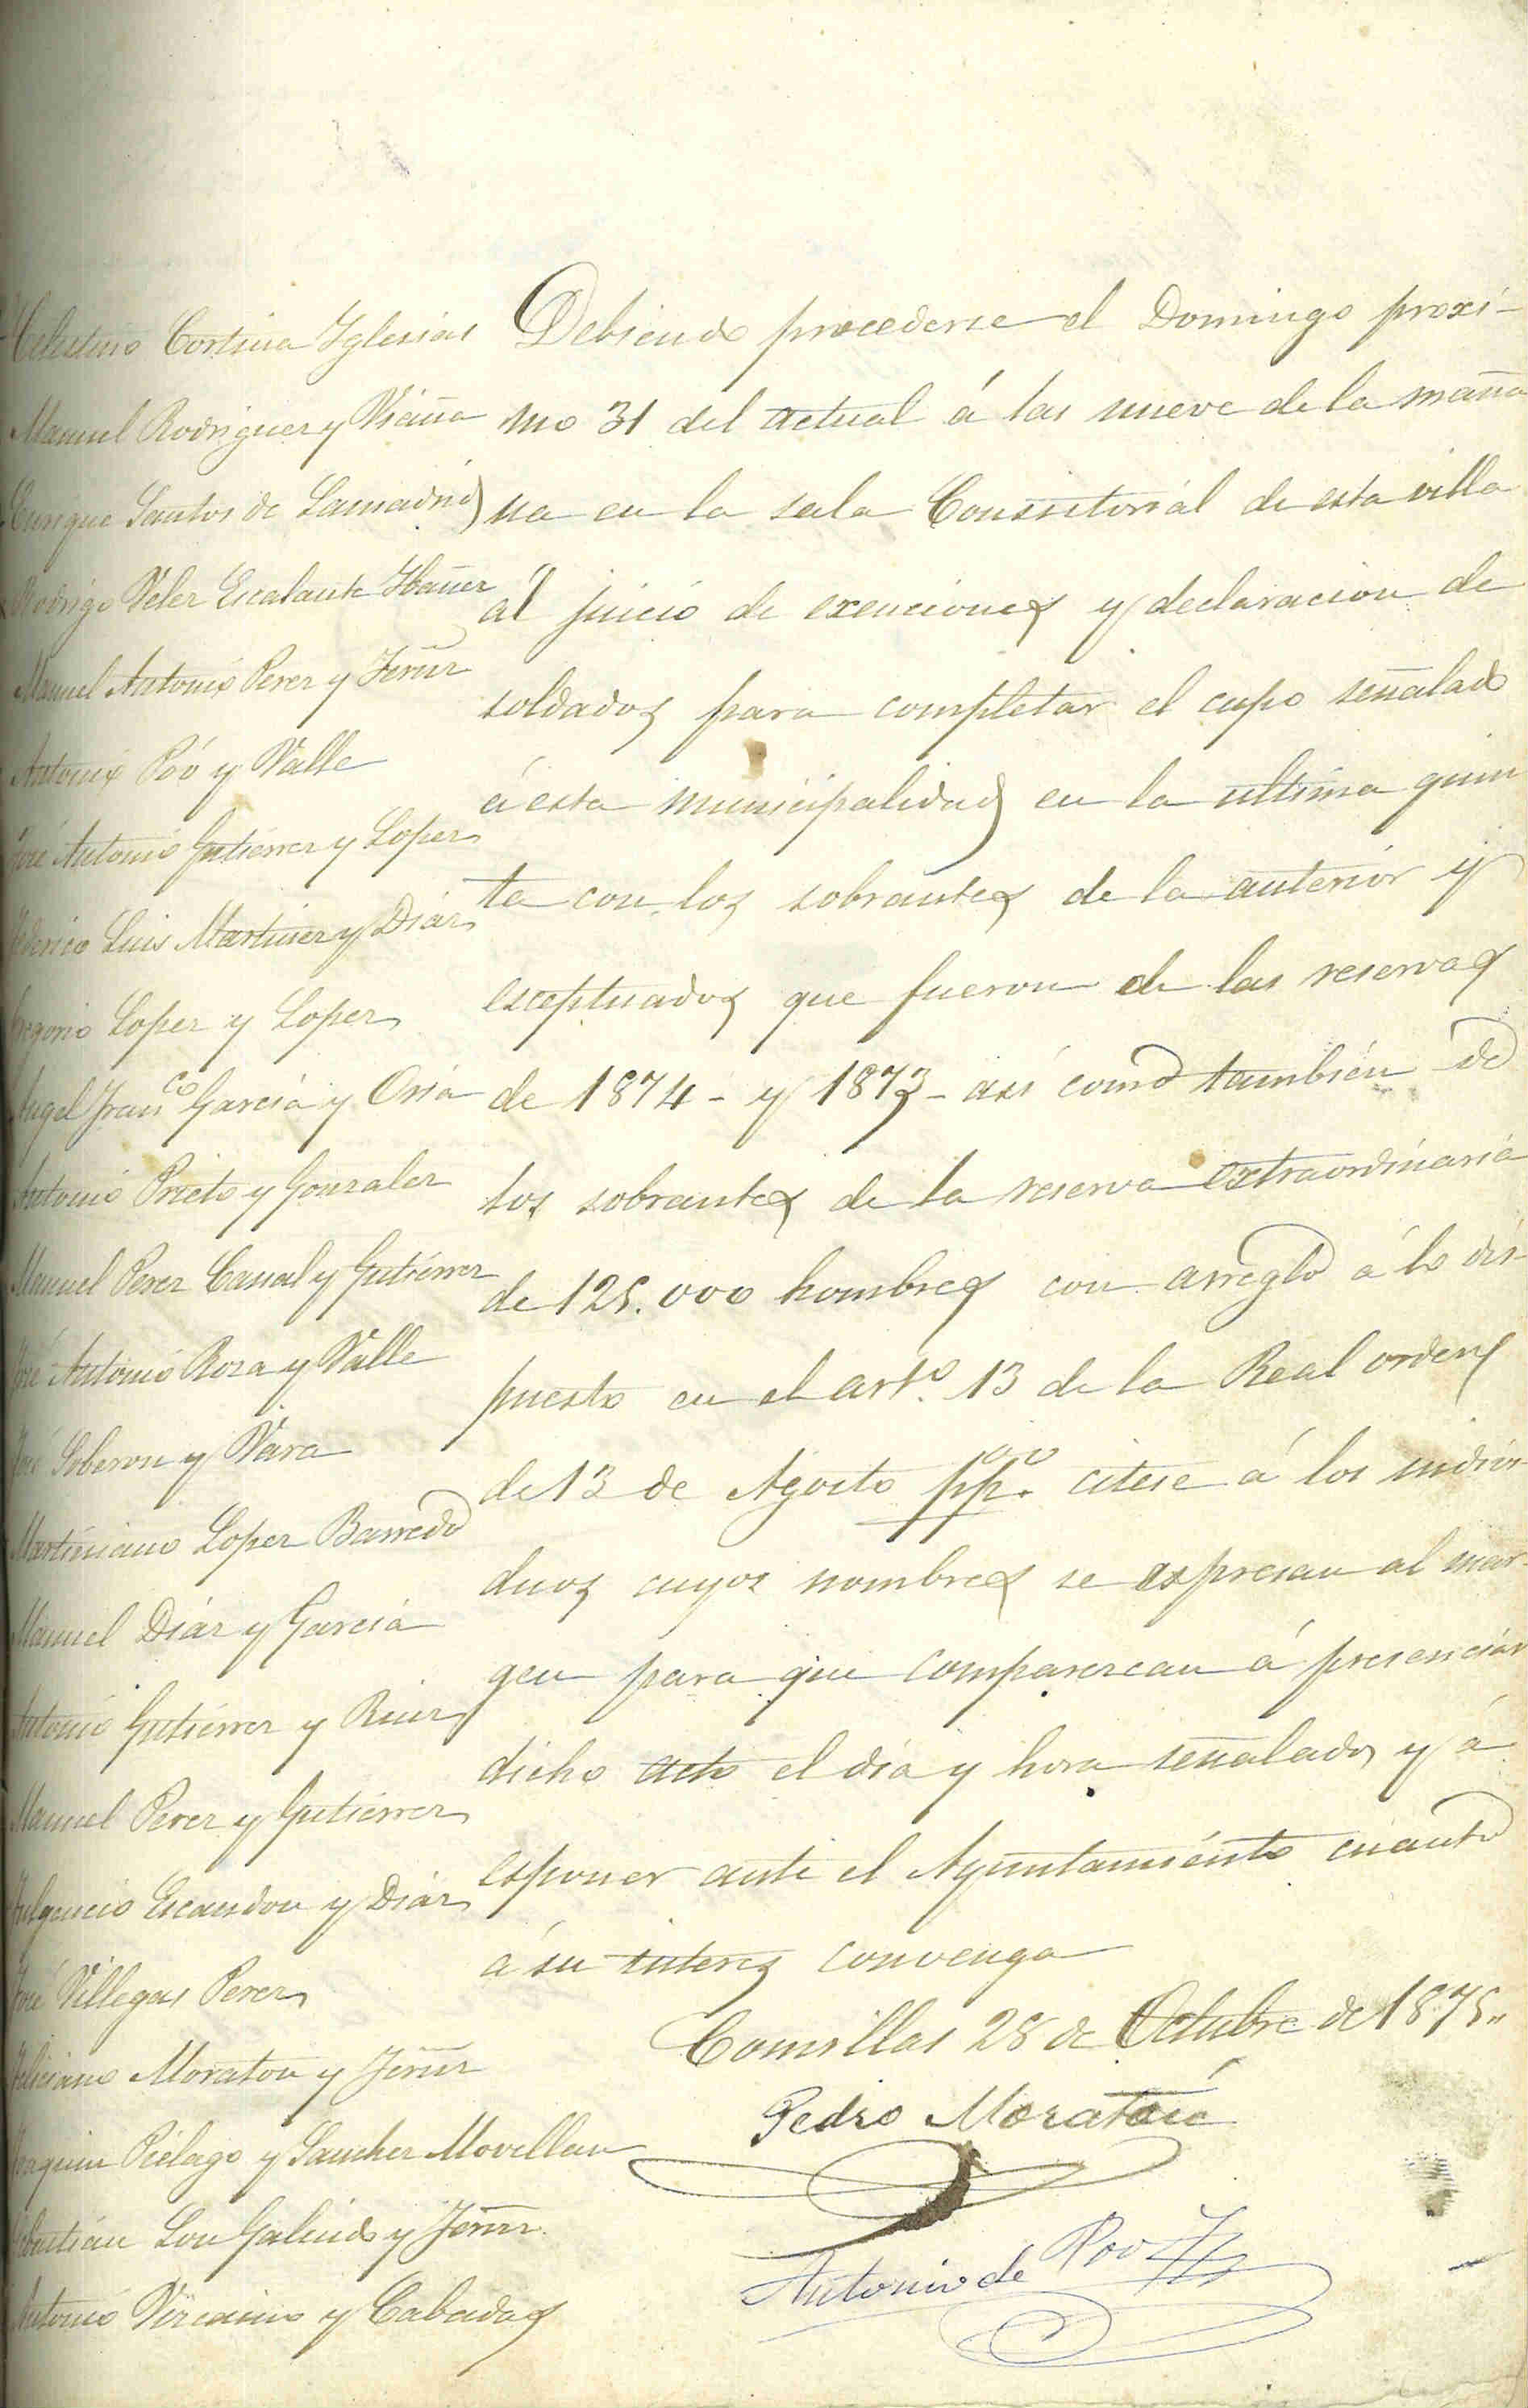 Celestino Cortina Yglesias
Manuel Rodriguez y Viaña
Enrique Santos de Lamadrid
Rodrigo Velez Escalante Ybañez
Manuel Antonio Perez y Fernz
Antonio Póo y Valle
José Antonio Gutierrez y Lopez
Federico Luis Martinez y Diáz
Gregorio Lopez y Lopez
Angel Franco García y Oria
Antonio Prieto y Gonzalez
Manuel Perez Canal y Gutiérrez
José Antonio Roza y Valle
José Soberon y Vara
Martiniano Lopez Barredo
Manuel Diáz y García
Antonio Gutiérrez y Ruiz
Manuel Perez y Gutiérrez
Fulgencio Escandon y Diáz
José Villegas Perez
Feliciano Moraton y Fernz
Joaquin Piélago y Sanchez Movellan
Sebastián Galindo y Fernz.
Antonio Vizcaino y Cabadas
Debiendo procederse el Domingo proxi-
mo 31 del actual á las nueve de la maña
na en la sala Consistorial de esta villa
ál juicio de exenciones y declaracion de
soldados para completar el cupo señalado
á esta municipalidad en la ultima quin
ta con los sobrantes de la anterior y
esceptuados que fueron de las reservas
de 1874 - y 1873 - así como también de
los sobrantes de la reserva extraordinaria
de 125.000 hombres con arreglo á lo dis-
puesto en el arto. 13 de la Real orden
de 13 de Agosto ppo. citese á los indivi-
duos cuyos nombres se espresan al mar-
gen para que comparezcan á presenciar
dicho acto el día y hora señalados y á
esponer ante el Ayuntamiento cuanto
á su interes convenga
Comillas 28 de Octubre de 1875.,
Pedro Moraton
Antonio de Póo